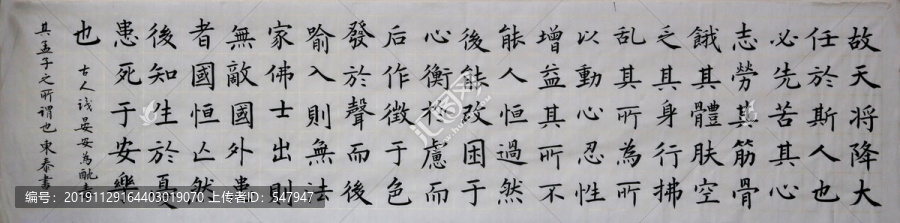 故天将降大
任於斯人也
必先苦其心
志勞其筋骨
餓其體肤空
乏其身行拂
乱其所為所
以動心忍性
增益其所不
能人恒過然
後能改困于
心衡於慮而
后作徵于色
發於聲而後
喻入則無法
家佛士出則
無敵國外患
者國恒亡然
後知生於憂
患死于安樂
也
古人晏安為酖
其孟子之所謂也 東泰書
编号：20191129164403019070 上传者ID：547947